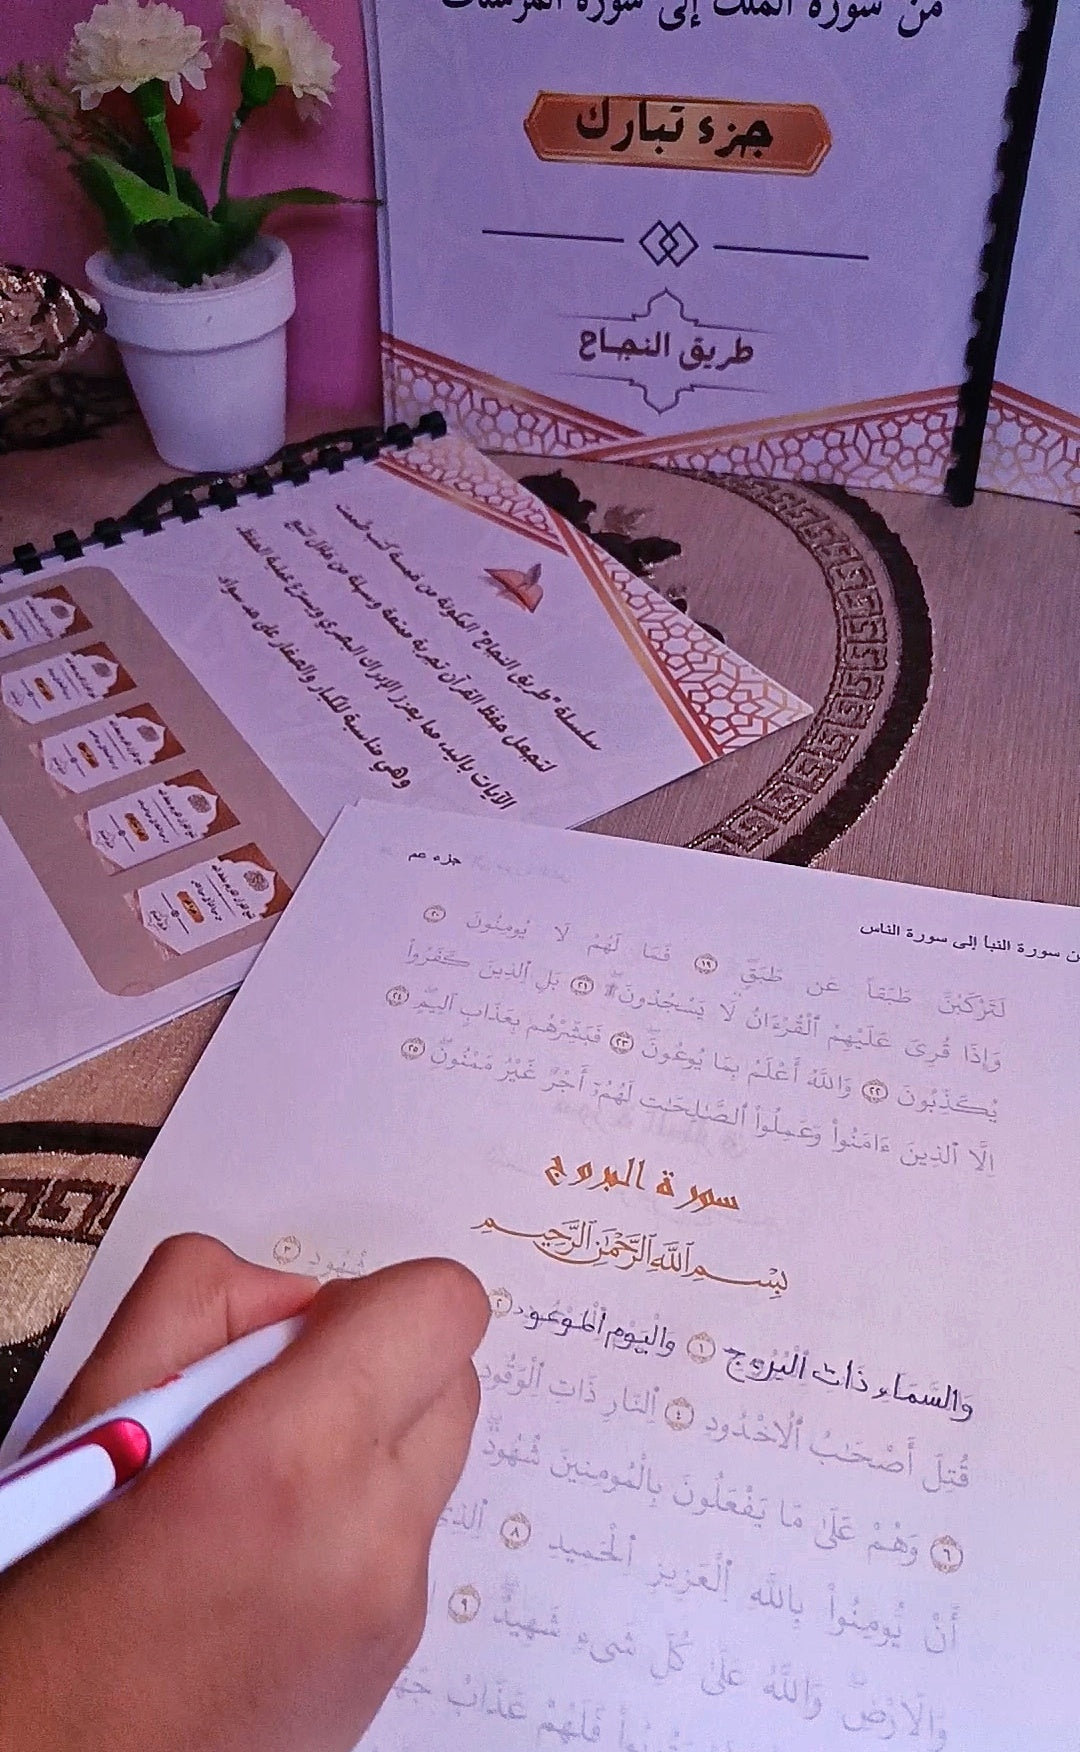 من سورة الملك إلى سورة المرسلات
جزء تبارك
طريق النجاح
سلسلة "طريق النجاح" المكونة من خمسة كتب صُممت
لتجعل حفظ القرآن تجربة ممتعة وسهلة من خلال تتبع
الآيات باليد، مما يعزز الإدراك البصري ويسرّع عملية الحفظ
وهي مناسبة للكبار والصغار على حد سواء
جزء عم
من سورة النبأ إلى سورة الناس
لَتَرْكَبُنَّ طَبَقاً عَن طَبَقٖ ١٩ فَمَا لَهُمْ لَا يُومِنُونَ ٢٠
وَإِذَا قُرِئَ عَلَيْهِمُ اُ۬لْقُرْءَانُ لَا يَسْجُدُونَ ٢١ بَلِ اِ۬لذِينَ كَفَرُواْ
يُكَذِّبُونَ ٢٢ وَاللَّهُ أَعْلَمُ بِمَا يُوعُونَ ٢٣ فَبَشِّرْهُم بِعَذَابٍ اَلِيمٍ ٢٤
اِلَّا اَ۬لذِينَ ءَامَنُواْ وَعَمِلُواْ اُ۬لصَّٰلِحَٰتِ لَهُمُۥٓ أَجْرٌ غَيْرُ مَمْنُونٖ ٢٥
سورة البروج
بِسْمِ اِ۬للَّهِ اِ۬لرَّحْمَٰنِ اِ۬لرَّحِيمِ
وَالسَّمَاءِ ذَاتِ اِ۬لْبُرُوجِ ١ وَالْيَوْمِ اِ۬لْمَوْعُودِ ٢ شُهُودٖ ٣
قُتِلَ أَصْحَٰبُ اُ۬لُاخْدُودِ ٤ اِ۬لنَّارِ ذَاتِ اِ۬لْوَقُودِ
٦ وَهُمْ عَلَىٰ مَا يَفْعَلُونَ بِالْمُومِنِينَ شُهُودٌ
أَنْ يُّومِنُواْ بِاللَّهِ اِ۬لْعَزِيزِ اِ۬لْحَمِيدِ ٨ اِ۬لذِے
وَالَارْضِ وَاللَّهُ عَلَىٰ كُلِّ شَےْءٖ شَهِيدٌ ٩
فَلَهُمْ عَذَابُ